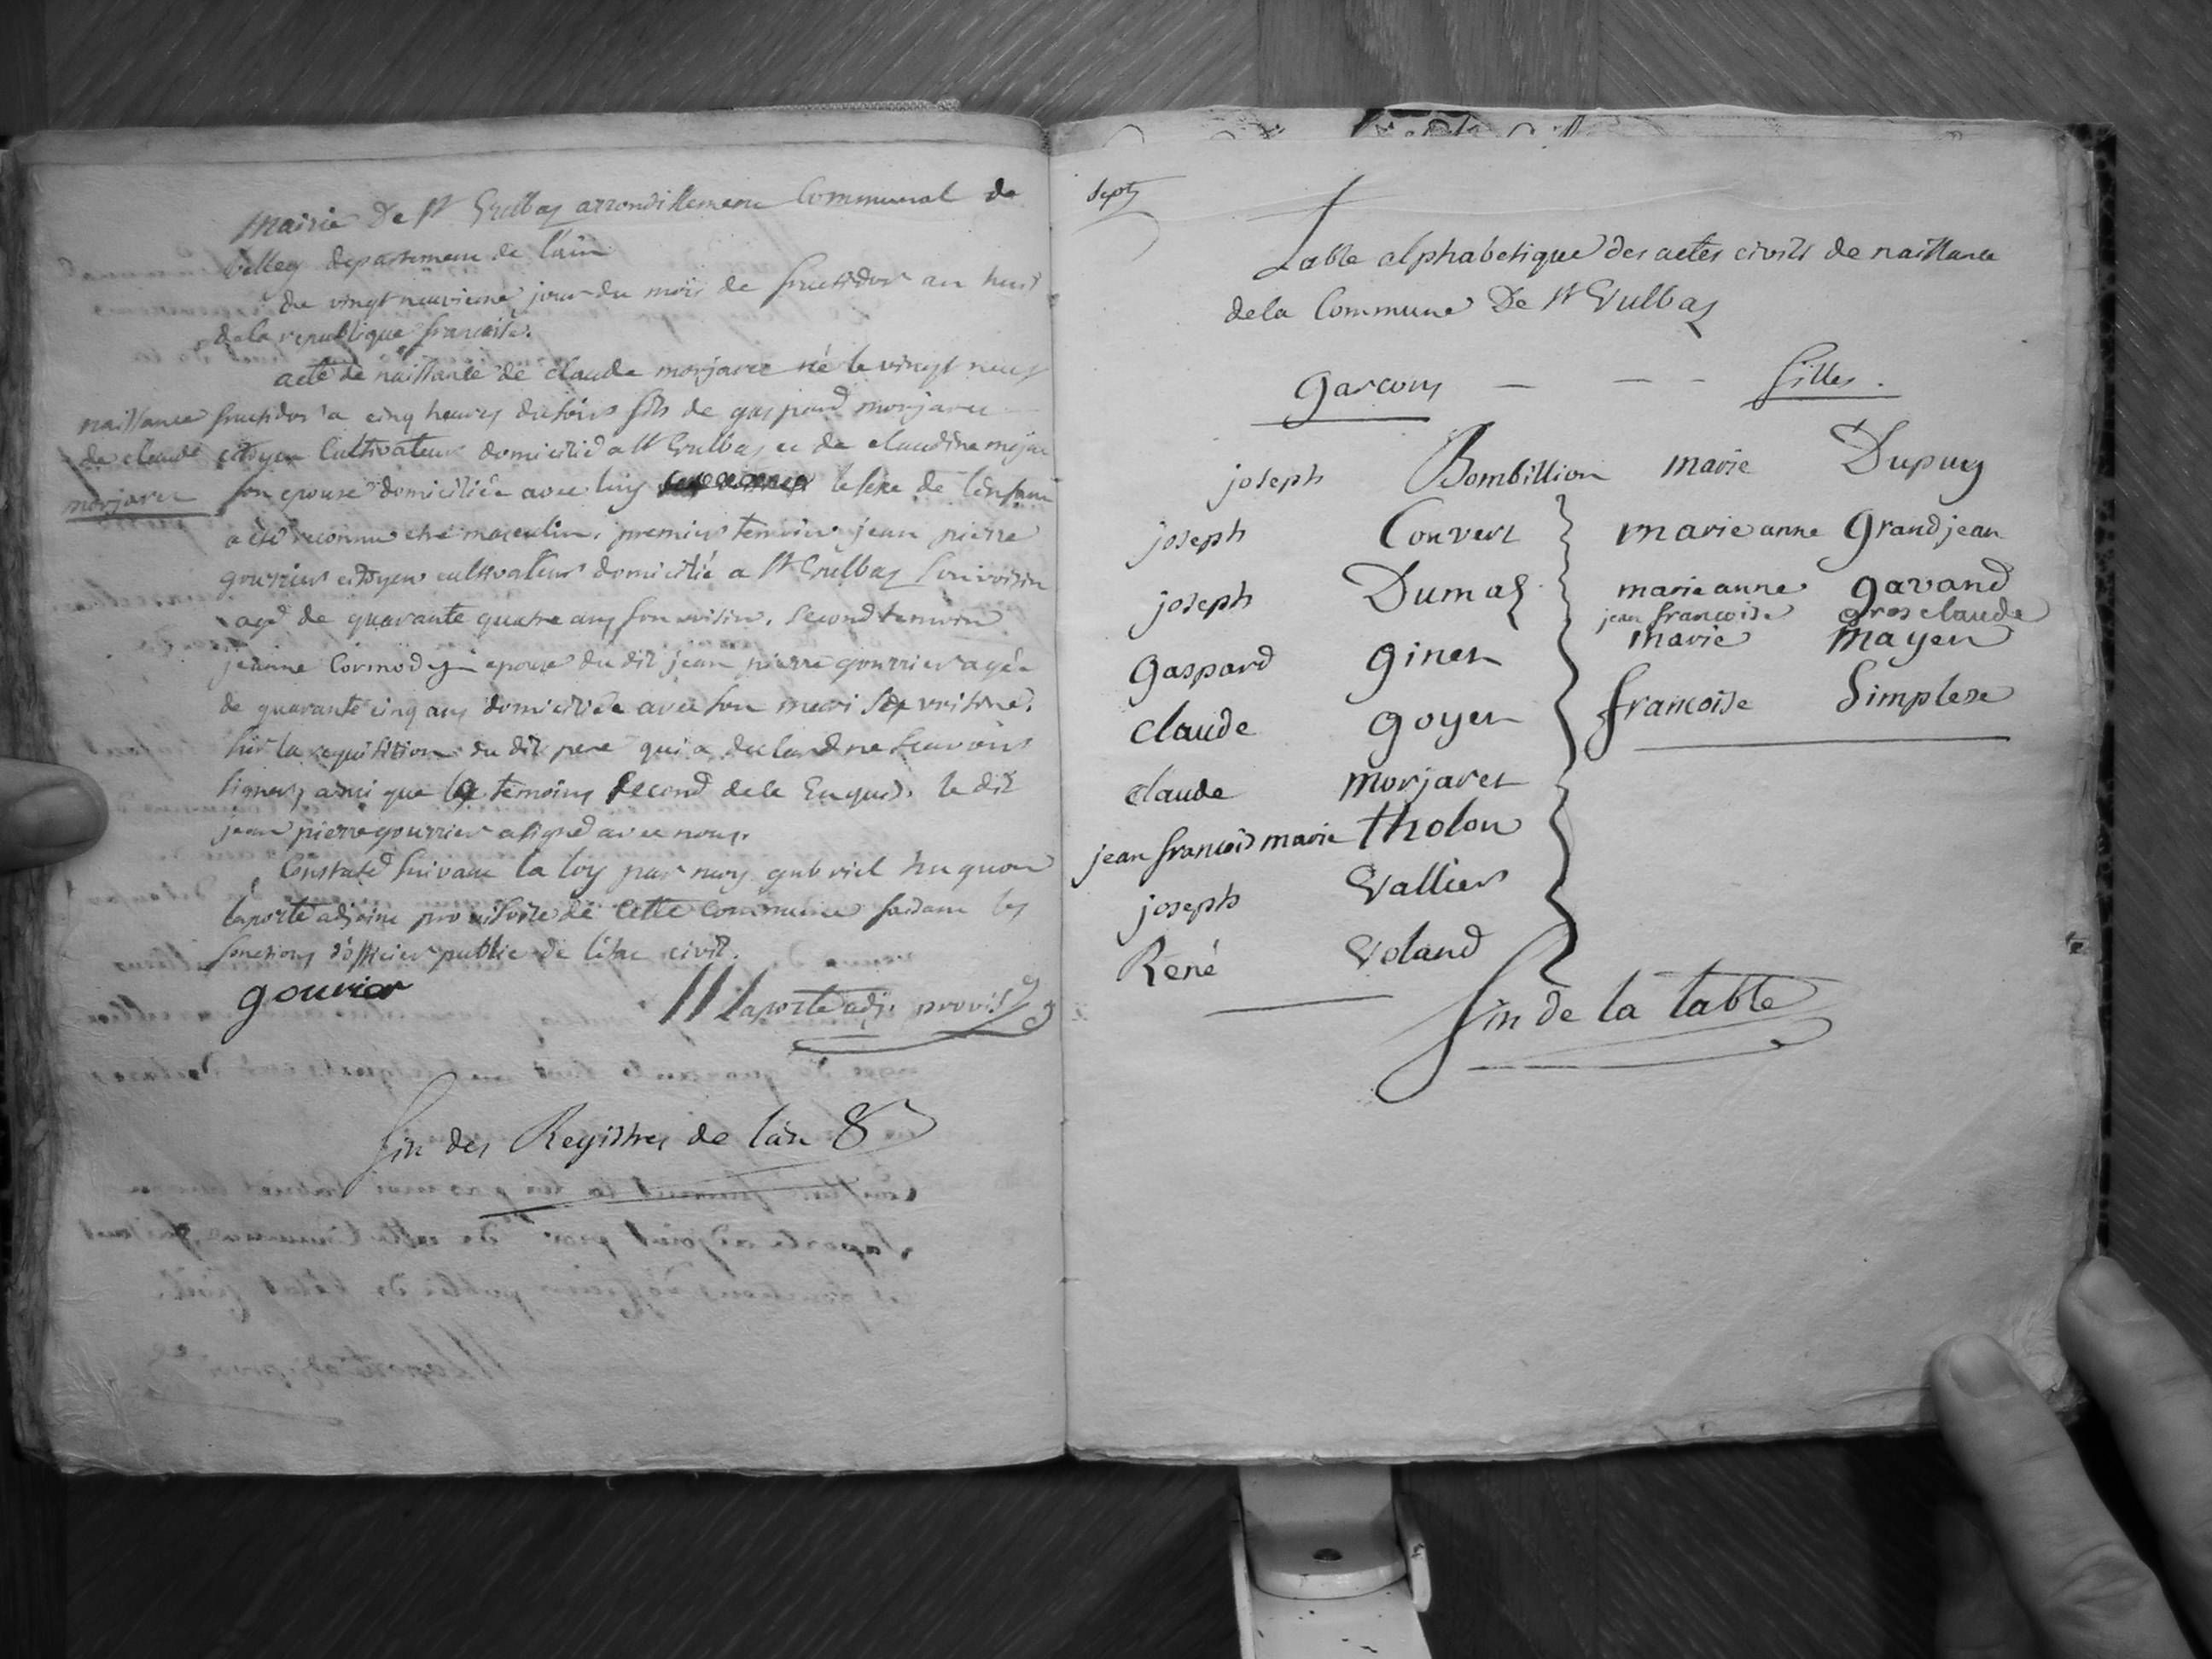 Mairie De St Vulbas arrondissement Communal de
belley departement de lain
du vingt neuvieme jour du mois de fructidor an huit
de la republique francaise.
acte de naissance de claude morjaret né le vingt neuf
fructidor a cinq heures du soir fils de gaspard morjaret
citoyen Cultivateur domicilié a St Vulbas et de claudine
son epouse domiciliée avec luy le sexe de lenfant
a été reconnu etre masculin. premier temoin jean pierre
gourrier citoyen cultivateur domicilié a St Vulbas son voisin
agé de quarante quatre ans son voisin. second temoin
jeanne epouse du dit jean pierre gourrier agée
de quarante cinq ans domiciliée avec son mari voisine.
sur la requisition du dit pere qui a declaré ne scavoir
signer, ainsi que temoins second de le Enquis. le dit
jean pierre gourrier a signé avec nous.
Constaté suivant la loy par moy gabriel huguon
laporte adjoint provisoire de cette commune faisant les
fonctions d'officier public de létat civil.
gourier
laporte adj. provis
naissance
de claude
morjaret
fin des Registres de lan 8
sept
Table alphabetique des actes civils de naissance
de la Commune De St Vulbas
garcons - - - filles.
joseph Bombillion marie Dupuy
joseph Convert marie anne grandjean
joseph Dumas marie anne gavand
jean francoise gros claude
gaspard ginet marie mayen
claude goyet francoise simplese
claude morjaret
jean francois marie tholon
joseph Vallier
René Voland
fin de la table